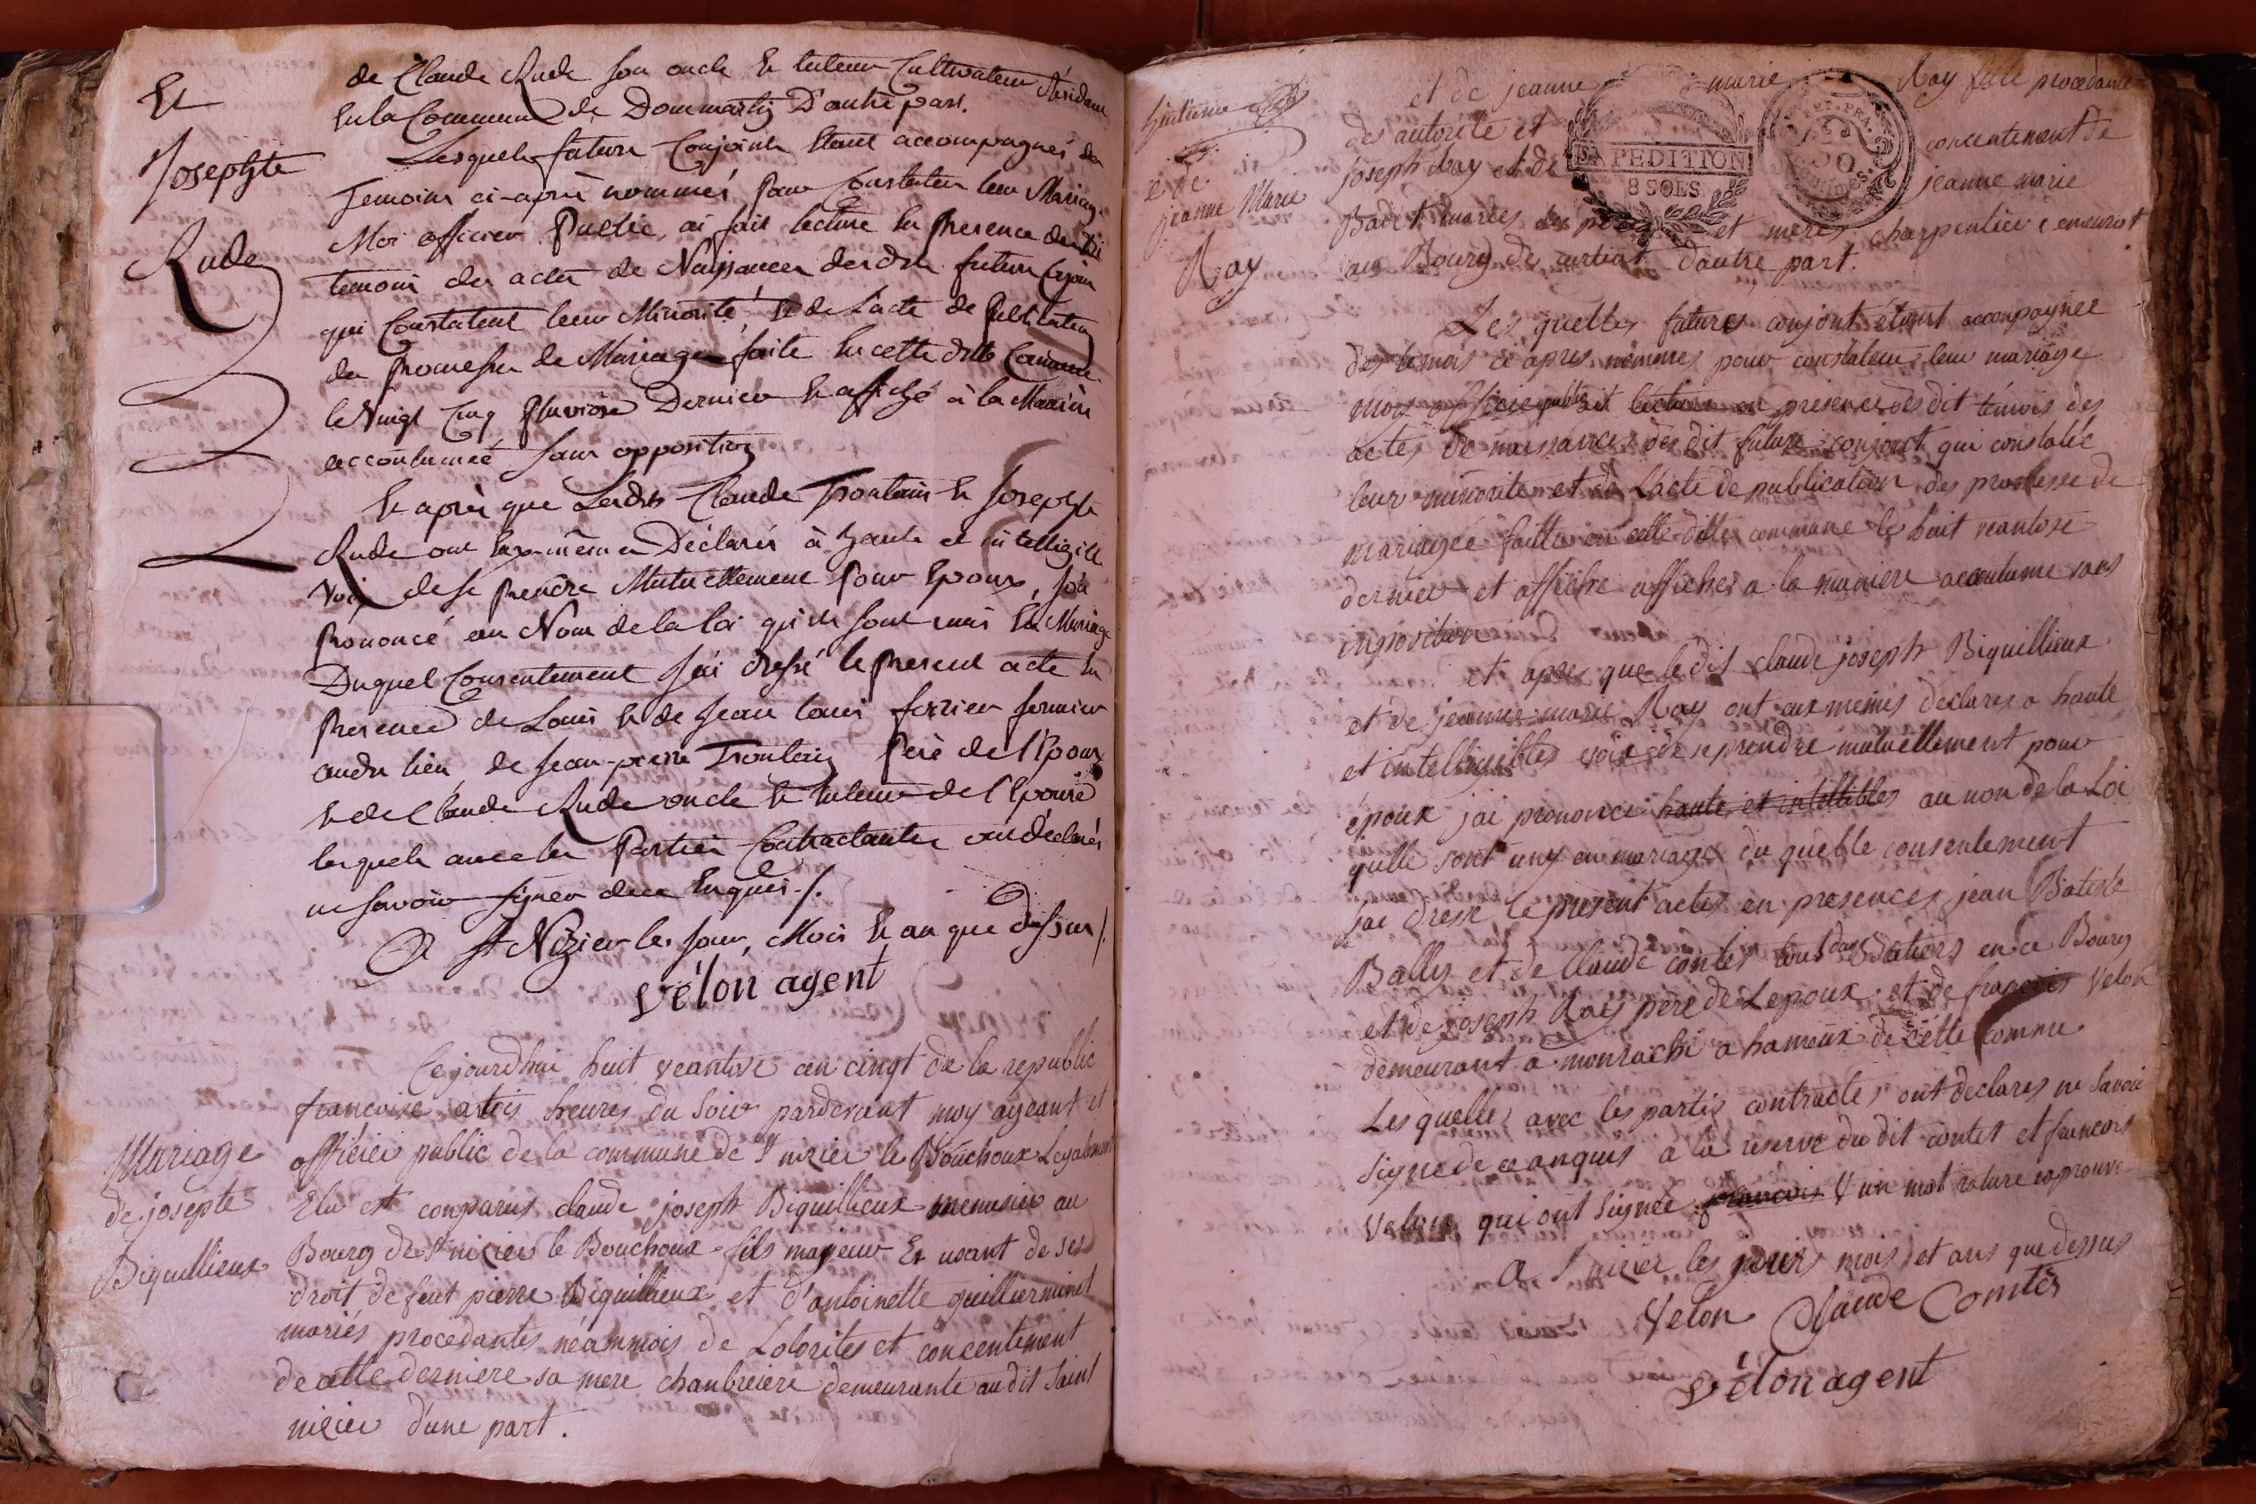 Et
Josephte
Rude
de Claude Rude son oncle et tuteur Cultivateur Résidant
En la Commune de Dommartin D'autre part.
Lesquels futurs Conjoints Etant accompagnés des
Temoins ci-après nommés pour Constater leur Mariage
Moi officier Public, ai fait lecture En Presence desdits
temoins des actes de Naissances desdits futurs Conjoins
qui Constatent leur Minorité, Et de L'acte de Publication
des Promesses de Mariage faite En cette ditte Commune
le Vingt Cinq Pluviose Dernier Et affiché à la Manière
accoutumée sans opposition
Et après que Lesdits Claude Troulain Et Josephte
Rude ont Eux-mêmes Déclarés à haute et intelligible
voix de se prendre Mutuellement Pour Epoux, J'ai
Prononcé au Nom de la loi qu'ils sont unis En Mariage
Duquel Consentement J'ai dressé le Present acte En
Presence de Louis Et de Jean Louis ferrier fermier
audit lieu, de Jean-pierre Troulain Père de l'Epoux
Et de Claude Rude oncle Et tuteur de l'Epouse
lesquels avec les Parties Contractantes ont déclarés
ne savoir signer de ce Enquis ./.
A St Nizier les Jour, Mois Et an que dessus /.
vélon agent
Mariage
de josepte
Biquillieux
Cejourdhui huit veantose an cingt de la republic
francoise a trois heures du soir pardevant moy ageant et
officiei public de la commune de St nizier le Bouchoux Legalement
Elu est conparus claude joseph Biquillieux menusier au
Bourg de St nizier le Bouchoux fils mageur Et usant de ses
droit de feut pierre Biquillieux et d'antoinette guilliermint
mariés procedantes néammois de Lotorites et concentement
de cette derniere sa mere chanbreiere demeurante au dit Saint
nizier d'une part.
et de
jeanne Marie
Ray
et de jeanne marie Ray fille procedante
de autorite et concentement de
joseph Ray et de jeanne marie
Badet mariés ses pere et meres charpentier demeurat
au Bourg de curtiat d'autre part.
Les quelles futures conjont étant accompagnee
des temois ce apres nommes pour constateur leur mariage
mois officie public ait lecture en presence des dit témois des
actes de naissances des dit future conjont qui constatée
leur minorite et de L'acte de publication des promesse de
mariagée faitte en cette ditte commune le huit veantose
dernier et affiche affiches a la maniere accoutume sans
inposition
et apres que le dit claude joseph Biquillieux
et de jeanne marie Ray ont eux memes declares a haute
et intelligibles voix de se prendre mutuellement pour
époux jai prononce haute et intellibles au non de la Loi
quille sont uny en mariage du quelle consentement
jai dresse le present actes en presences jean Batiste
Ballus et de Claude contet tous dans Satiers en ce Bourg
et de joseph Rays père de Lepoux et de francois Velon
demeurant a monrachi a hameux de cette comme
Les quelles avec les partis contractes ont declares ne savoir
signe de ce anquis a la reserve du dit contet et francois
Velon qui ont signée francois & un mot rature approuve
A St nizier les jours mois et ans que dessus
Velon Claude Comtet
vélon agent
EXPEDITION
8 SOLS